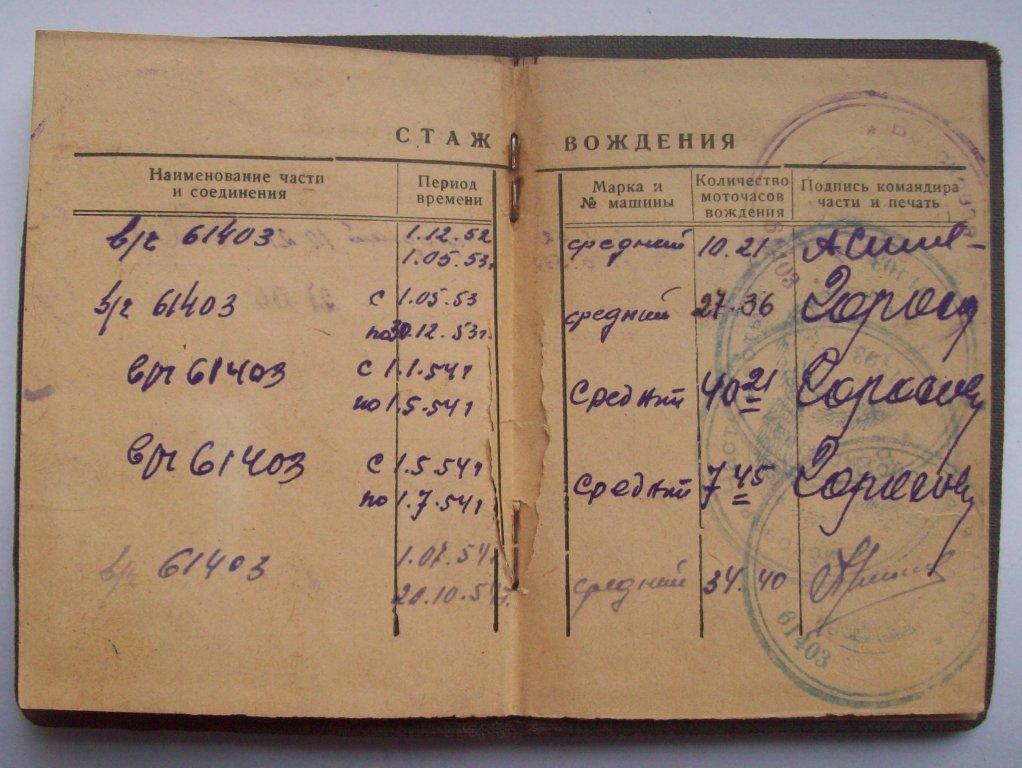 СТАЖ ВОЖДЕНИЯ
Наименование части и соединения
Период времени
Марка и № машины
Количество моточасов вождения
Подпись командира части и печать
в/ч 61403 1.12.52 средний 10.21
1.05.53г.
в/ч 61403 с 1.05.53 средний 27-36
по 30.12.53г.
в/ч 61403 с 1.1.54г средний 40 21
по 1.5.54г
в/ч 61403 с 1.5.54г средний 7 45
по 1.7.54г
в/ч 61403 1.07.54г. средний 34.40
20.10.54г.
61403